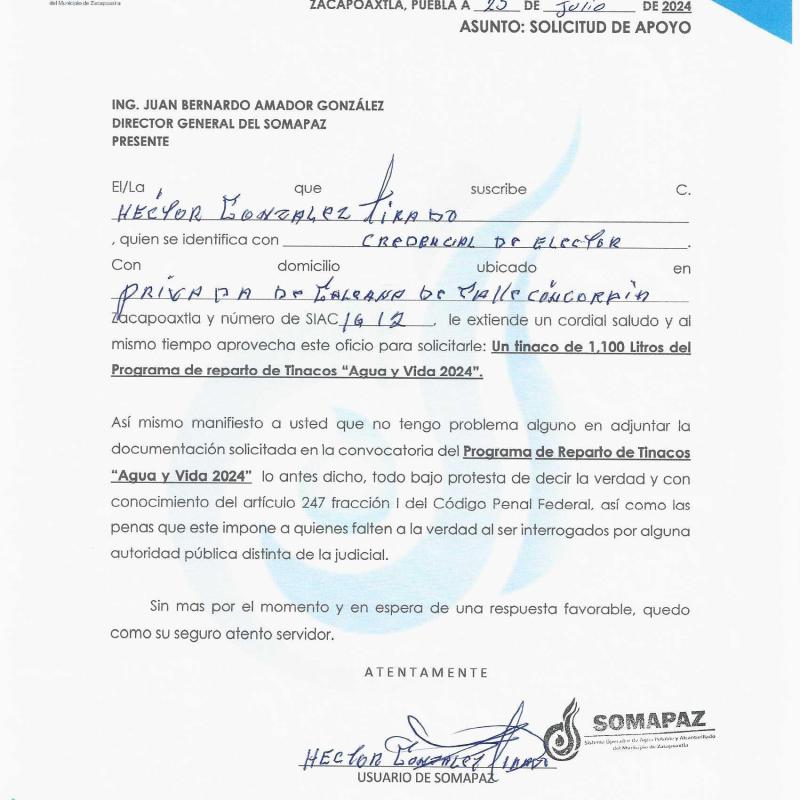 del Municipio de Zacapoaxtla
ZACAPOAXTLA, PUEBLA A 25 DE Julio DE 2024
ASUNTO: SOLICITUD DE APOYO
ING. JUAN BERNARDO AMADOR GONZÁLEZ
DIRECTOR GENERAL DEL SOMAPAZ
PRESENTE
El/La que suscribe C.
HECTOR GONZALEZ TIRADO
, quien se identifica con CREDENCIAL DE ELECTOR.
Con domicilio ubicado en
PRIVADA DE GALEANA DE
Zacapoaxtla y número de SIAC 1612, le extiende un cordial saludo y al
mismo tiempo aprovecha este oficio para solicitarle: Un tinaco de 1,100 Litros del
Programa de reparto de Tinacos “Agua y Vida 2024”.
Así mismo manifiesto a usted que no tengo problema alguno en adjuntar la
documentación solicitada en la convocatoria del Programa de Reparto de Tinacos
“Agua y Vida 2024” lo antes dicho, todo bajo protesta de decir la verdad y con
conocimiento del artículo 247 fracción I del Código Penal Federal, así como las
penas que este impone a quienes falten a la verdad al ser interrogados por alguna
autoridad pública distinta de la judicial.
Sin mas por el momento y en espera de una respuesta favorable, quedo
como su seguro atento servidor.
ATENTAMENTE
SOMAPAZ
Sistema Operador de Agua Potable y Alcantarillado
del Municipio de Zacapoaxtla
HECTOR GONZALEZ TIRADO
USUARIO DE SOMAPAZ